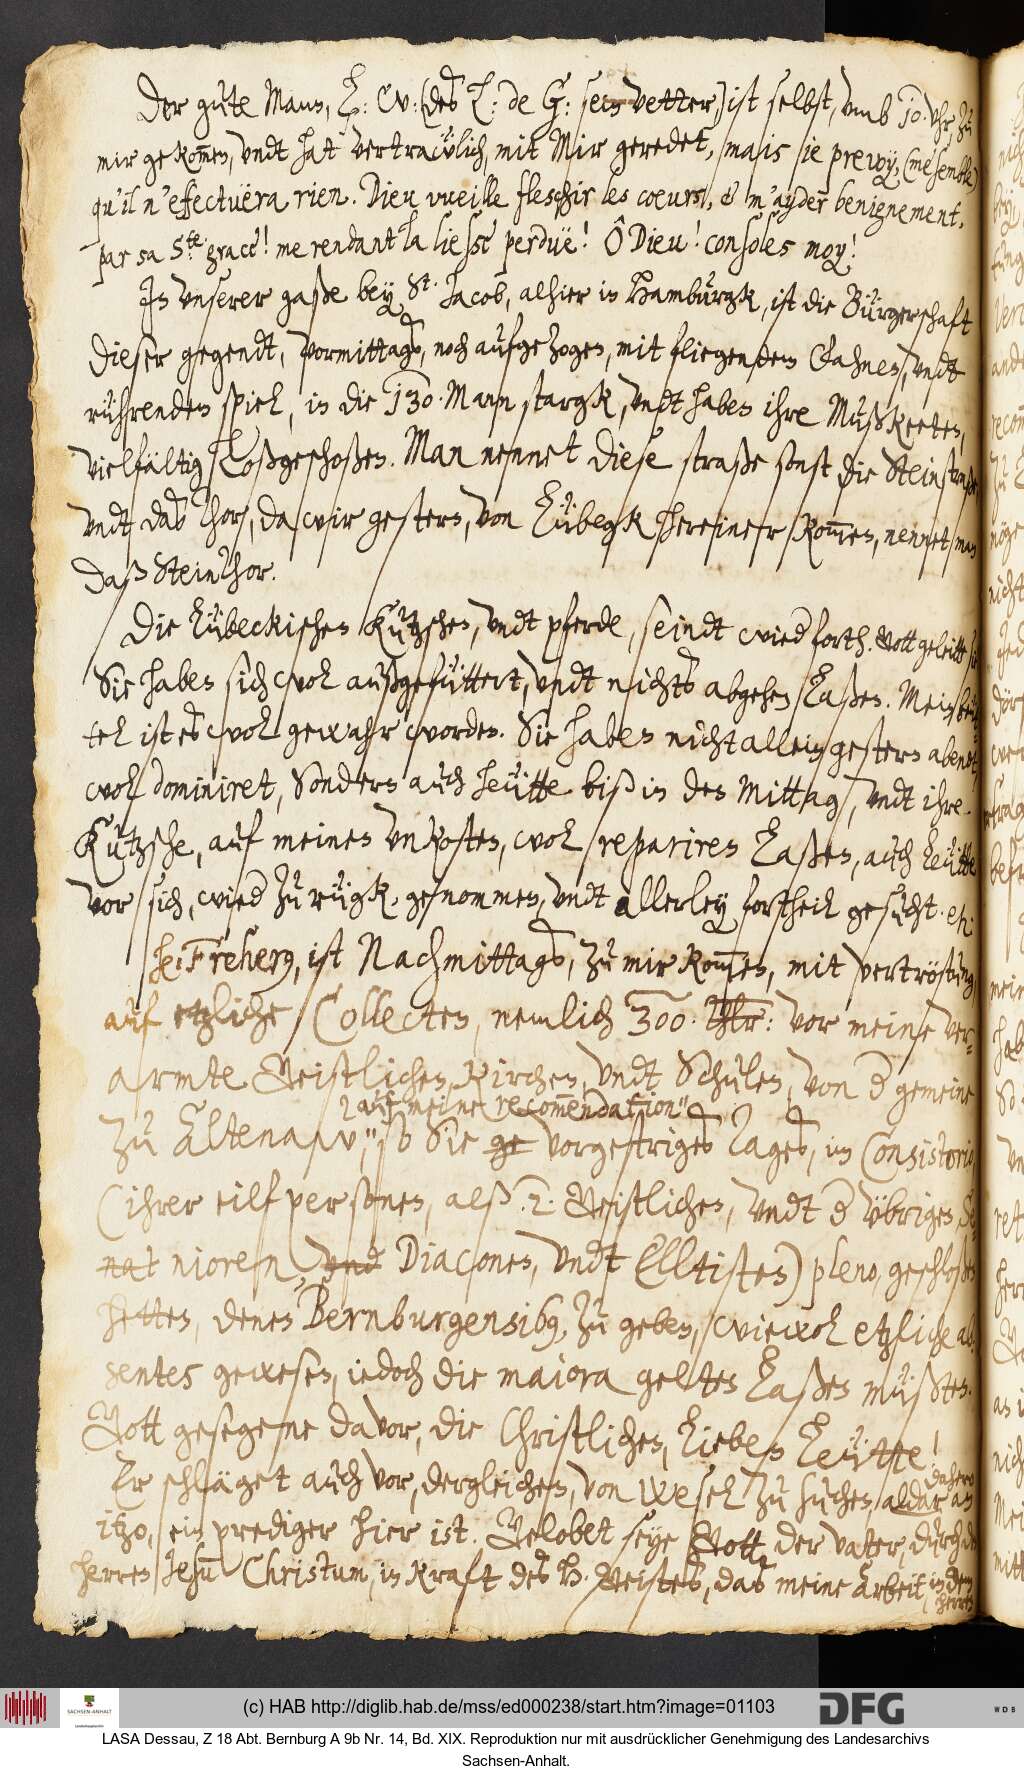 Der gute Mann, L: W: (des L: de G: sein vetter,) ist selbst, vmb 10. vhr, zu
mir gekom̅en, vndt hat vertrawlich, mit Mir geredet, mais je prevoy, (me semble)
qu'il n'effectuëra rien. Dieu vueille fleschir les coeurs, & m'ayder benignement,
par sa Ste. grace! me rendant la liesse perduë! Ô Dieu! consoles moy!
In vnserer gaße bey St. Jacob, alhier in Hamburgk, ist die Bürgerschaft
dieser gegendt, vormittags, noch aufgezogen, mit fliegenden Fahnen, vndt
rührenden spiel, in die 130. Mann stargk, vndt haben ihre Mußkeeten,
vielfältig Loßgeschoßen. Man nennet diese straße sonst die Steinstraße
vndt das Thor, da wir gestern, von Lübegk hereiner kom̅en, nennet man
daß SteinThor.
Die Lübeckischen Kutzschen, vndt pferde, seindt wied forth. Gott geleitt sie
Sie haben sich wol außgefüttert, vndt nichts abgehen Laßen. Mein beü
tel ist es wol gewahr worden. Sie haben nicht allein gestern abendt,
wol dominiret, Sondern auch heütte biß in den Mittag, vndt ihre
Kutzsche, auf meinen vnkosten, wol repariren Laßen, auch Leütte
vor sich, wied zu rügk, genommen, vndt allerley fortheil gesucht. et:
He: Freherg, ist Nachmittags, zu mir kom̅en, mit vertröstung,
auf etzliche Collecten, nemlich 300. Thlr: vor meine ver-
armte Geistlichen, Kirchen, vndt Schulen, von d gemeine
auf meine recom̅endation"
zu Altenaw, "so Sie ge vorgestriges Tages, im Consistorio
(ihrer eilf personen, alß: 2. Geistlichen, vndt d vbrigen, Se-
nat nioren vnd Diaconen, vndt Elltisten) pleno, geschloßen
hetten, denen Bernburgensibg, zu geben, wiewol etzliche ab-
sentes gewesen, iedoch die maiora gelten Laßen müßten.
Gott gesegene davor, die Christlichen, Lieben Leütte!
Er schläget auch vor, dergleichen, von Wesel zu suchen, aldar an
dahero
itzo, ein prediger hier ist. Gelobet seye Gott, der vatter, durch den
herren Jesum Christum, in Kraft des H. Geistes, das meine arbeit, in dem
herren
(c) HAB http://diglib.hab.de/mss/ed000238/start.htm?image=01103
SACHSEN-ANHALT
DFG
WDB
LASA Dessau, Z 18 Abt. Bernburg A 9b Nr. 14, Bd. XIX. Reproduktion nur mit ausdrücklicher Genehmigung des Landesarchivs
Sachsen-Anhalt.